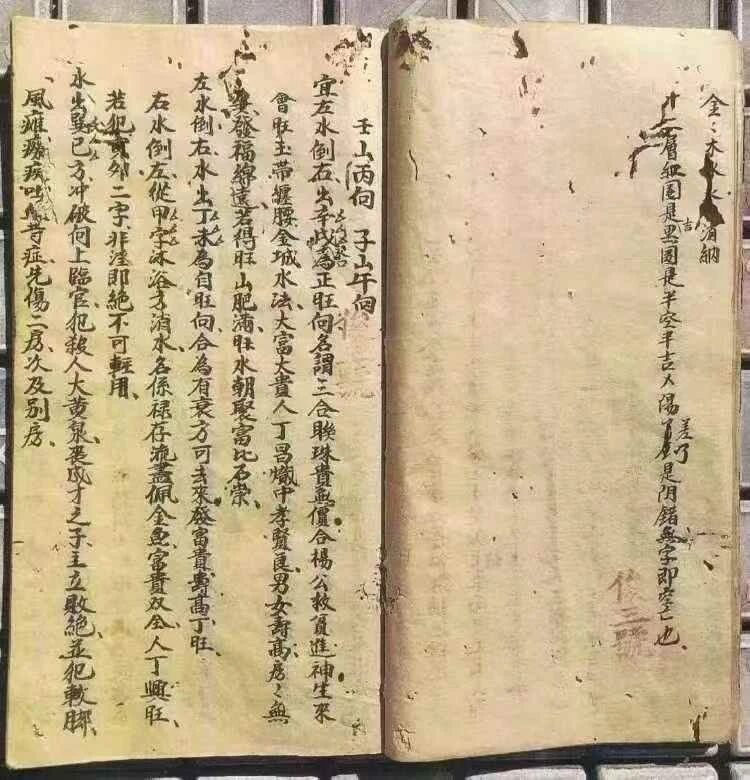 金木水火消納
十二層紅圈是黑圈是半空半吉
陽差
是阴錯無字即空亡也
後三號
壬山丙向 子山午向
宜左水倒右出辛戌為正旺向名謂三合聯珠貴無價合楊公救貧進神生來
會旺玉帶纏腰金城水法大富大貴人丁昌熾中孝賢良男女壽高房〻無
發福綿遠若得旺山肥滿旺水朝聚富比石崇
左水倒右水出丁未為自旺向合為有衰方可去來發富貴壽高丁旺
右水倒左從甲字沐浴方消水名係禄存流盡佩金魚富貴双全人丁興旺
若犯寅卯二字非淫即絕不可輕用
水出巽巳方冲破向上臨官犯殺人大黄泉丧成才之子主立敗絕並犯軟脚
風癱癆疾吐等症先傷二房次及别房